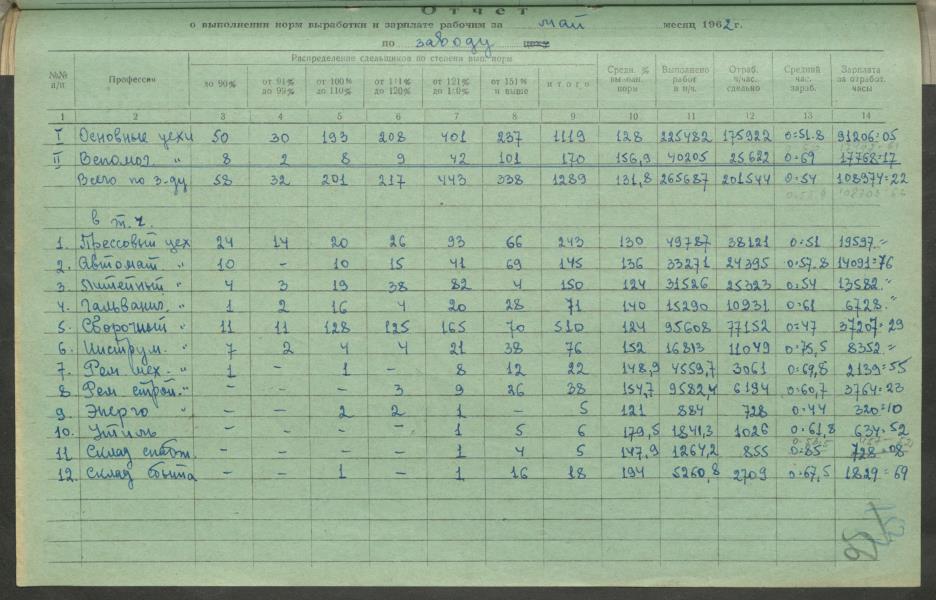 Отчет
о выполнении норм выработки и зарплате рабочим за май месяц 1962 г.
по заводу цеху
№№ п/п Профессия Распределение сдельщиков по степени вып. норм Средн. % вып. норм Выполнено работ в н/ч. Отраб. ч/час. сдельно Средний час. зараб. Зарплата за отработ. часы
до 90% от 91% до 99% от 100% до 110% от 111% до 120% от 121% до 150% от 151% и выше итого
1 2 3 4 5 6 7 8 9 10 11 12 13 14
I Основные цехи 50 30 193 208 401 237 1119 128 225482 175922 0=51.8 91206=05
II Вспомог. " 8 2 8 9 42 101 170 156,9 40205 25622 0=69 17768=17
Всего по з-ду 58 32 201 217 443 338 1289 131,8 265687 201544 0=54 108974=22
в т.ч.
1. Прессовый цех 24 14 20 26 93 66 243 130 49787 38121 0=51 19597.=
2. Автомат " 10 - 10 15 41 69 145 136 33271 24395 0=57.8 14091=76
3. Литейный " 4 3 19 38 82 4 150 124 31526 25323 0=54 13582.=
4. Гальванич. " 1 2 16 4 20 28 71 140 15290 10931 0=61 6728.=
5. Сборочный " 11 11 128 125 165 70 510 124 95608 77152 0=47 37207=29
6. Инструм. " 7 2 4 4 21 38 76 152 16813 11049 0=75,5 8352.=
7. Рем мех. " 1 - 1 - 8 12 22 148,9 4559,7 3061 0=69,8 2139=55
8. Рем строй. " - - - 3 9 26 38 154,7 9582,4 6194 0=60,7 3764=23
9. Энерго " - - 2 2 1 - 5 121 884 728 0=44 320=10
10. Утиль - - - - 1 5 6 179,5 1841,3 1026 0=61,8 634=52
11 Склад снабж. - - - - 1 4 5 147,9 1264,2 855 0=85 728=08
12. Склад сбыта - - 1 - 1 16 18 194 5260,8 2709 0=67,5 1829=69